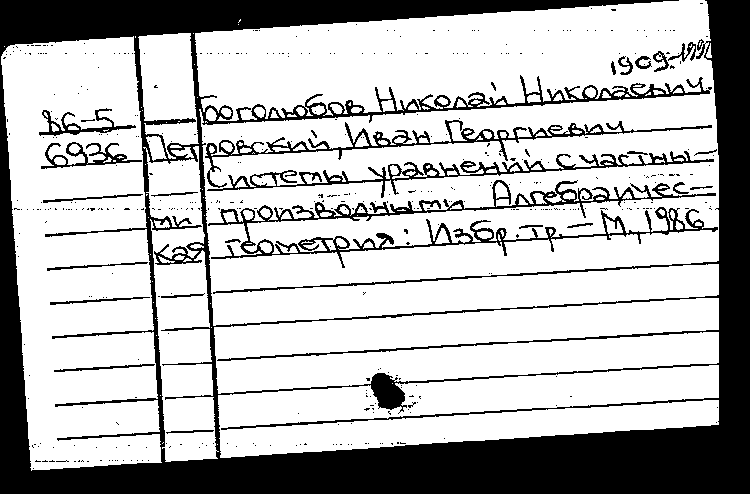 1909-1992
86-5 Боголюбов, Николай Николаевич.
6936 Петровский, Иван Георгиевич
Системы уравнений с частны-
ми производными Алгебраичес-
кая геометрия: Избр. тр. - М., 1986.